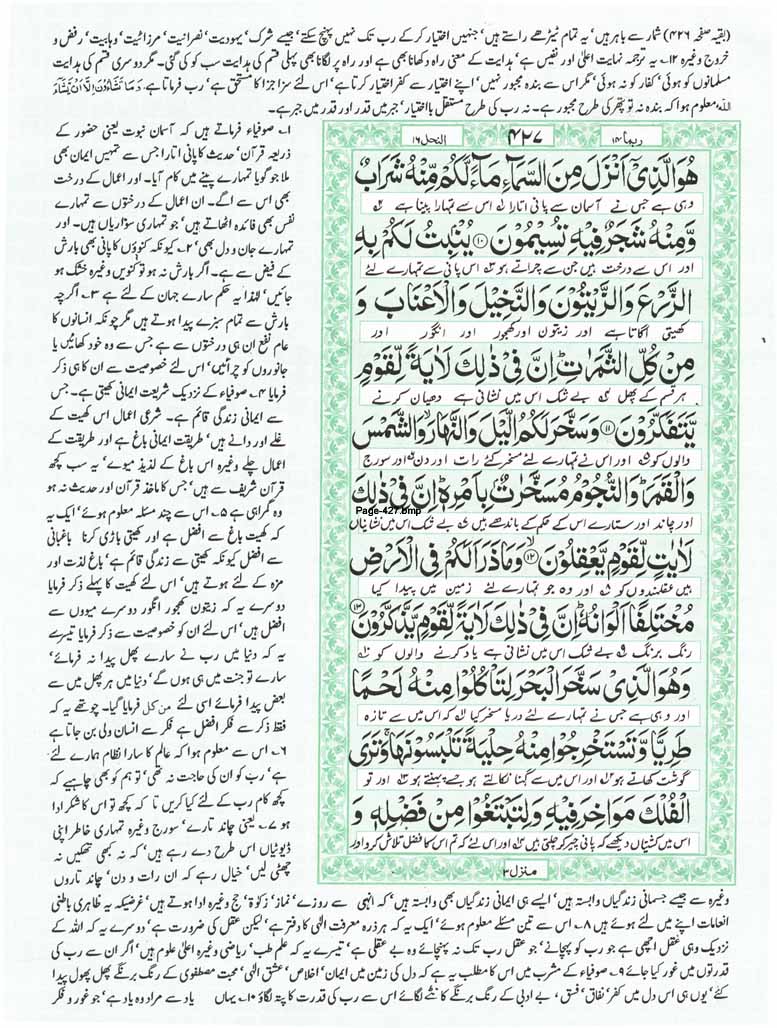 (بقیہ صفحہ ۴۲۶) شمار سے باہر ہیں' یہ تمام ٹیڑھے راستے ہیں' جنہیں اختیار کر کے رب تک نہیں پہنچ سکتے' جیسے شرک' یہودیت' نصرانیت' مرزائیت' وہابیت' رفض و
خروج وغیرہ ۱۲۔ یہ ترجمہ نہایت اعلیٰ اور نفیس ہے' ہدایت کے معنی راہ دکھانا بھی ہے اور راہ پر لگانا بھی پہلی قسم کی ہدایت سب کو کی گئی۔ مگر دوسری قسم کی ہدایت
مسلمانوں کو ہوئی' کفار کو نہ ہوئی' مگر اس سے بندہ مجبور نہیں' اپنے اختیار سے کفر اختیار کرتا ہے' اس لئے سزا جزا کا مستحق ہے' رب فرماتا ہے۔ وَمَا تَشَاءُونَ اِلَّا اَنْ یَّشَاءَ
اللہ' معلوم ہوا کہ بندہ نہ تو پتھر کی طرح مجبور ہے۔ نہ رب کی طرح مستقل باختیار' جبر میں قدر اور قدر میں جبر ہے۔
ربما ۱۴
۴۲۷
النحل ۱۶
هُوَ الَّذِیْۤ اَنْزَلَ مِنَ السَّمَآءِ مَآءً لَّكُمْ مِّنْهُ شَرَابٌ
وہی ہے جس نے آسمان سے پانی اتارا اس سے تمہارا پینا ہے
وَّمِنْهُ شَجَرٌ فِیْهِ تُسِیْمُوْنَ ۱۰ یُنْۢبِتُ لَكُمْ بِهِ
اور اس سے درخت ہیں جن سے چراتے ہو اس پانی سے تمہارے لئے
الزَّرْعَ وَالزَّیْتُوْنَ وَالنَّخِیْلَ وَالْاَعْنَابَ وَ
کھیتی اگاتا ہے اور زیتون اور کھجور اور انگور اور
مِنْ كُلِّ الثَّمَرٰتِ ؕ اِنَّ فِیْ ذٰلِكَ لَاٰیَةً لِّقَوْمٍ
ہر قسم کے پھل بے شک اس میں نشانی ہے دھیان کرنے
یَّتَفَكَّرُوْنَ ۱۱ وَسَخَّرَ لَكُمُ الَّیْلَ وَالنَّهَارَ ۙ وَالشَّمْسَ
والوں کو اور اس نے تمہارے لئے مسخر کئے رات اور دن اور سورج
وَالْقَمَرَ ؕ وَالنُّجُوْمُ مُسَخَّرٰتٌۢ بِاَمْرِهٖ ؕ اِنَّ فِیْ ذٰلِكَ
Page-427.bmp
اور چاند اور ستارے اس کے حکم کے باندھے ہیں بے شک اس میں نشانیاں
لَاٰیٰتٍ لِّقَوْمٍ یَّعْقِلُوْنَ ۱۲ وَمَا ذَرَاَ لَكُمْ فِی الْاَرْضِ
ہیں عقلمندوں کو اور وہ جو تمہارے لئے زمین میں پیدا کیا
مُخْتَلِفًا اَلْوَانُهٗ ؕ اِنَّ فِیْ ذٰلِكَ لَاٰیَةً لِّقَوْمٍ یَّذَّكَّرُوْنَ ۱۳
رنگ برنگ بے شک اس میں نشانی ہے یاد کرنے والوں کو
وَهُوَ الَّذِیْ سَخَّرَ الْبَحْرَ لِتَاْكُلُوْا مِنْهُ لَحْمًا
اور وہی ہے جس نے تمہارے لئے دریا مسخر کیا کہ اس میں سے تازہ
طَرِیًّا وَّتَسْتَخْرِجُوْا مِنْهُ حِلْیَةً تَلْبَسُوْنَهَا ۚ وَتَرَی
گوشت کھاتے ہو اور اس میں سے گہنا نکالتے ہو جسے پہنتے ہو اور تو
الْفُلْكَ مَوَاخِرَ فِیْهِ وَلِتَبْتَغُوْا مِنْ فَضْلِهٖ وَ
اس میں کشتیاں دیکھے کہ پانی چیر کر چلتی ہیں اور اس لئے کہ تم اس کا فضل تلاش کرو اور
منزل ۳
۱۔ صوفیاء فرماتے ہیں کہ آسمان نبوت یعنی حضور کے
ذریعہ قرآن' حدیث کا پانی اتارا جس سے تمہیں ایمان بھی
ملا جو گویا تمہارے پینے میں کام آیا۔ اور اعمال کے درخت
بھی اس سے اگے۔ ان اعمال کے درختوں سے تمہارے
نفس بھی فائدہ اٹھاتے ہیں' جو تمہاری سواریاں ہیں۔ اور
تمہارے جان و دل بھی' ۲۔ کیونکہ کنوؤں کا پانی بھی بارش
کے فیض سے ہے۔ اگر بارش نہ ہو تو کنویں وغیرہ خشک ہو
جائیں' لہٰذا یہ حکم سارے جہان کے لئے ہے ۳۔ اگرچہ
بارش سے تمام سبزے پیدا ہوتے ہیں مگر چونکہ انسانوں کا
عام نفع ان ہی درختوں سے ہے جس سے وہ خود کھائیں یا
جانوروں کو چرائیں' اس لئے خصوصیت سے ان کا ہی ذکر
فرمایا ۴۔ صوفیاء کے نزدیک شریعت ایمانی کھیتی ہے۔ جس
سے ایمانی زندگی قائم ہے۔ شرعی اعمال اس کھیت کے
غلے اور دانے ہیں' طریقت ایمانی باغ ہے اور طریقت کے
اعمال چلے وغیرہ اس باغ کے لذیذ میوے' یہ سب کچھ
قرآن شریف سے ہیں' جس کا ماخذ قرآن اور حدیث نہ ہو
وہ گمراہی ہے ۵۔ اس سے چند مسئلہ معلوم ہوئے' ایک یہ
کہ کھیت باغ سے افضل ہے اور کھیتی باڑی کرنا باغبانی
سے افضل کیونکہ کھیتی سے زندگی قائم ہے' باغ لذت اور
مزہ کے لئے ہوتے ہیں' اس لئے کھیت کا پہلے ذکر فرمایا
دوسرے یہ کہ زیتون کھجور انگور دوسرے میووں سے
افضل ہیں' اس لئے ان کو خصوصیت سے ذکر فرمایا تیسرے
یہ کہ دنیا میں رب نے سارے پھل پیدا نہ فرمائے'
سارے تو جنت میں ہی ہوں گے' دنیا میں ہر پھل میں سے
بعض پیدا فرمائے اسی لئے من کل فرمایا گیا۔ چوتھے یہ کہ
فقط ذکر سے فکر افضل ہے فکر سے انسان ولی بن جاتا ہے
۶۔ اس سے معلوم ہوا کہ عالم کا سارا نظام ہمارے لئے
ہے' رب کو ان کی حاجت نہ تھی' تو ہم کو بھی چاہیے کہ
کچھ کام رب کے لئے کیا کریں تا کہ کچھ تو اس کا شکر ادا
ہو ۷۔ یعنی چاند تارے' سورج وغیرہ تمہاری خاطر اپنی
ڈیوٹیاں اس طرح دے رہے ہیں' کہ نہ کبھی تھکیں نہ
چھٹی لیں' خیال رہے کہ ان رات و دن' چاند تاروں
وغیرہ سے جیسے جسمانی زندگیاں وابستہ ہیں' ایسے ہی ایمانی زندگیاں بھی وابستہ ہیں' کہ انہی سے روزے' نماز' زکوٰۃ' حج وغیرہ ادا ہوتے ہیں' غرضیکہ یہ ظاہری باطنی
انعامات اپنے میں لئے ہوئے ہیں ۸۔ اس سے تین مسئلے معلوم ہوئے' ایک یہ کہ ہر ذرہ معرفت الٰہی کا دفتر ہے' لیکن عقل کی ضرورت ہے' دوسرے یہ کہ اللہ کے
نزدیک وہی عقل اچھی ہے جو رب کو پہچانے' جو عقل رب تک نہ پہنچائے وہ بے عقلی ہے' تیسرے یہ کہ علم طب' ریاضی وغیرہ اعلیٰ علوم ہیں' اگر ان سے رب کی
قدرتوں میں غور کیا جائے ۹۔ صوفیاء کے مشرب میں اس کا مطلب یہ ہے کہ دل کی زمین میں ایمان' اخلاص' عشق الٰہی' محبت مصطفوی کے رنگ برنگے پھل پھول پیدا
کئے' یوں ہی اس دل میں کفر' نفاق' فسق' بے ادبی کے رنگ برنگے کانٹے لگائے اس سے رب کی قدرت کا پتہ لگاؤ ۱۰۔ یہاں یاد سے مراد وہ یاد ہے' جو غور و فکر